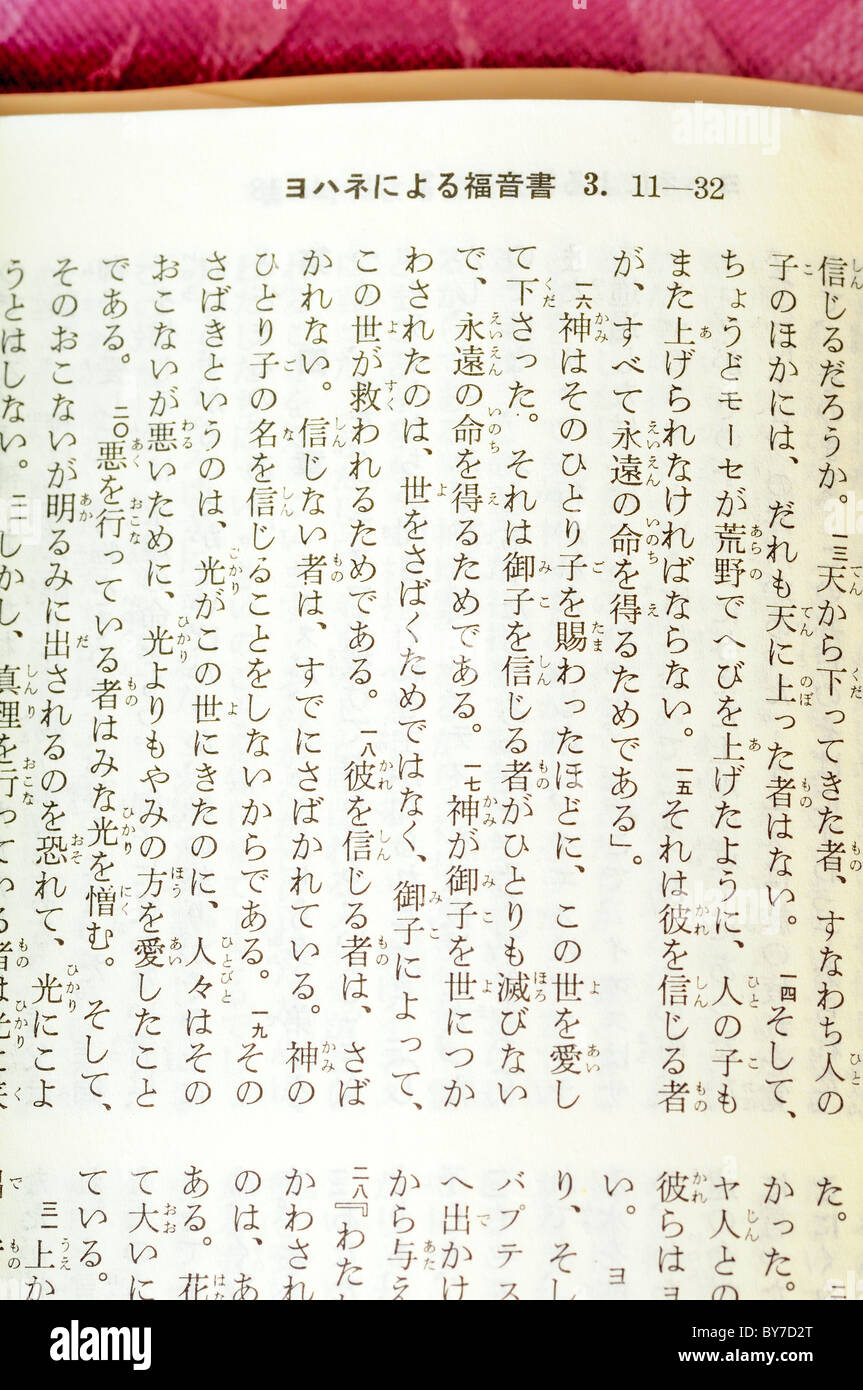 ヨハネによる福音書 3. 11—32
信じるだろうか。一三天から下ってきた者、すなわち人の
子のほかには、だれも天に上った者はない。一四そして、
ちょうどモーセが荒野でへびを上げたように、人の子も
また上げられなければならない。一五それは彼を信じる者
が、すべて永遠の命を得るためである」。
一六神はそのひとり子を賜わったほどに、この世を愛し
て下さった。それは御子を信じる者がひとりも滅びない
で、永遠の命を得るためである。一七神が御子を世につか
わされたのは、世をさばくためではなく、御子によって、
この世が救われるためである。一八彼を信じる者は、さば
かれない。信じない者は、すでにさばかれている。神の
ひとり子の名を信じることをしないからである。一九その
さばきというのは、光がこの世にきたのに、人々はその
おこないが悪いために、光よりもやみの方を愛したこと
である。二〇悪を行っている者はみな光を憎む。そして、
そのおこないが明るみに出されるのを恐れて、光にこよ
うとはしない。二一しかし、真理を行っている者は光に来
た。
かった。
ヤ人との
彼らはヨ
い。ヨ
り、そし
バプテス
へ出かけ
から与え
二八『わたし
かわされ
のは、あ
ある。花
て大いに
ている。
三一上か
alamy
Image ID: BY7D2T
www.alamy.com